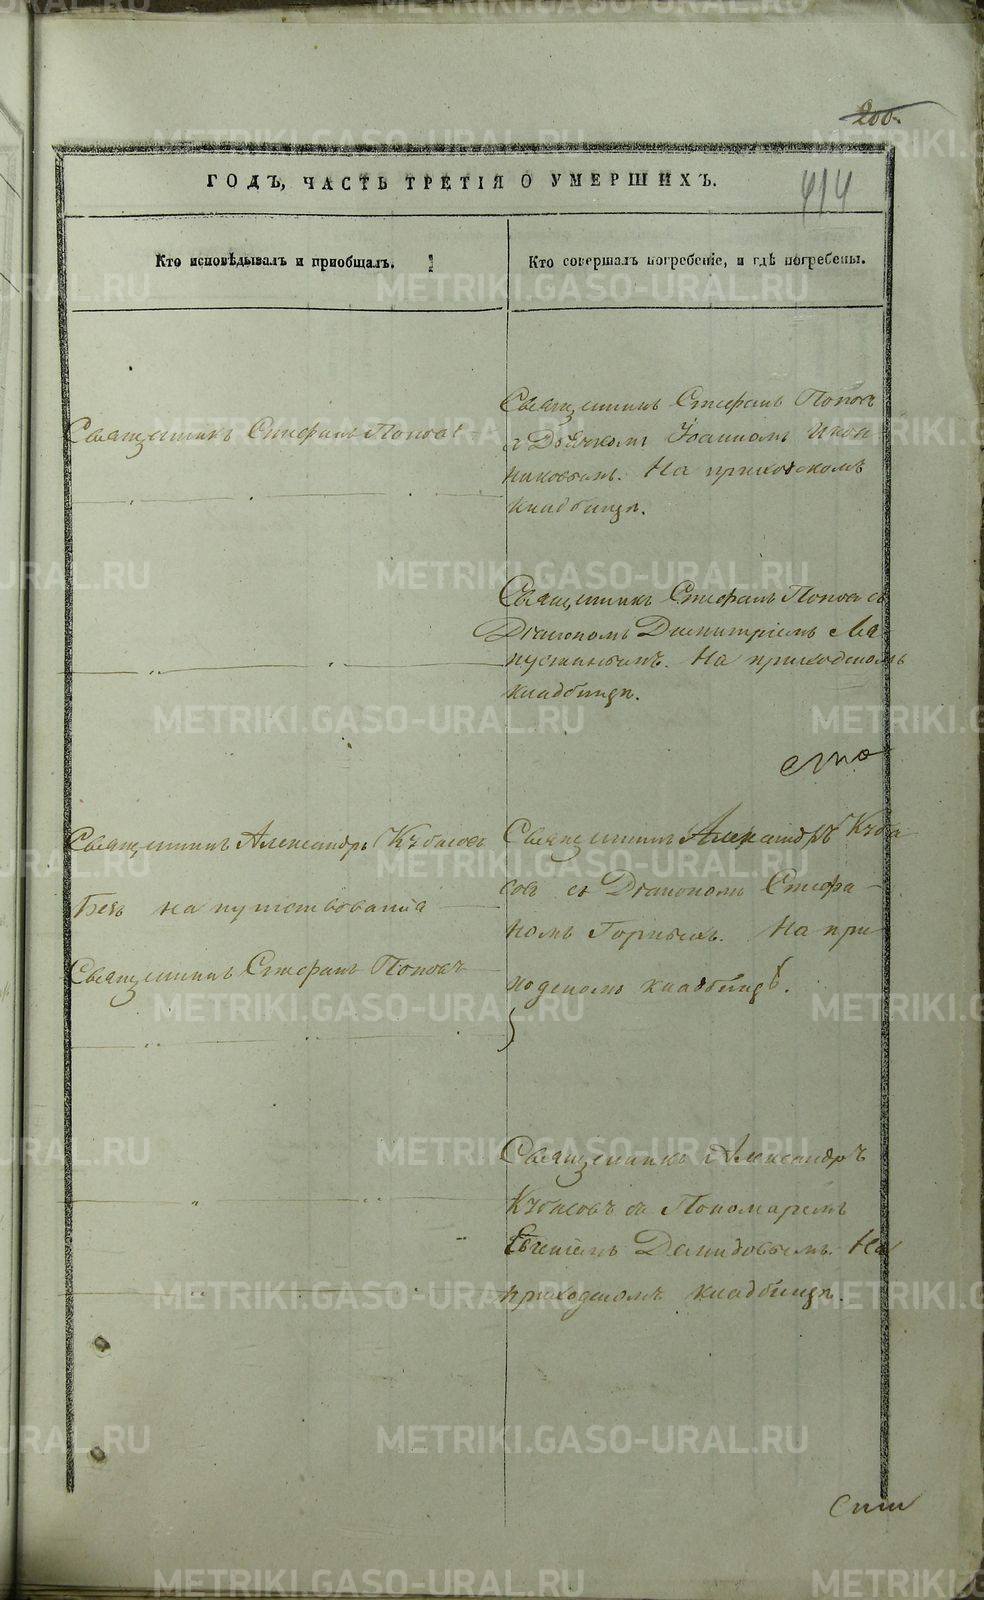 200.
414
ГОДЪ, ЧАСТЬ ТРЕТІЯ О УМЕРШИХЪ.
Кто исповѣдывалъ и приобщалъ.
Кто совершалъ погребеніе, и гдѣ погребены.
Священникъ Стефанъ Поповъ
Священникъ Стефанъ Поповъ
Іоанномъ Икон
никовымъ. На приходскомъ
кладбищѣ.
Священникъ Стефанъ Поповъ съ
Діакономъ Димитріемъ Ла
пустинымъ. На приходскомъ
кладбищѣ.
Священникъ Александръ Кубасовъ
Безъ напутствованія
Священникъ Стефанъ Поповъ
Священникъ Александръ Куба
совъ съ Діакономъ Стефа
номъ Горныхъ. На при
ходскомъ кладбищѣ.
Священникъ Александръ
Кубасовъ съ Пономаремъ
Евгеніемъ Демидовымъ. На
приходскомъ кладбищѣ.
METRIKI.GASO-URAL.RU